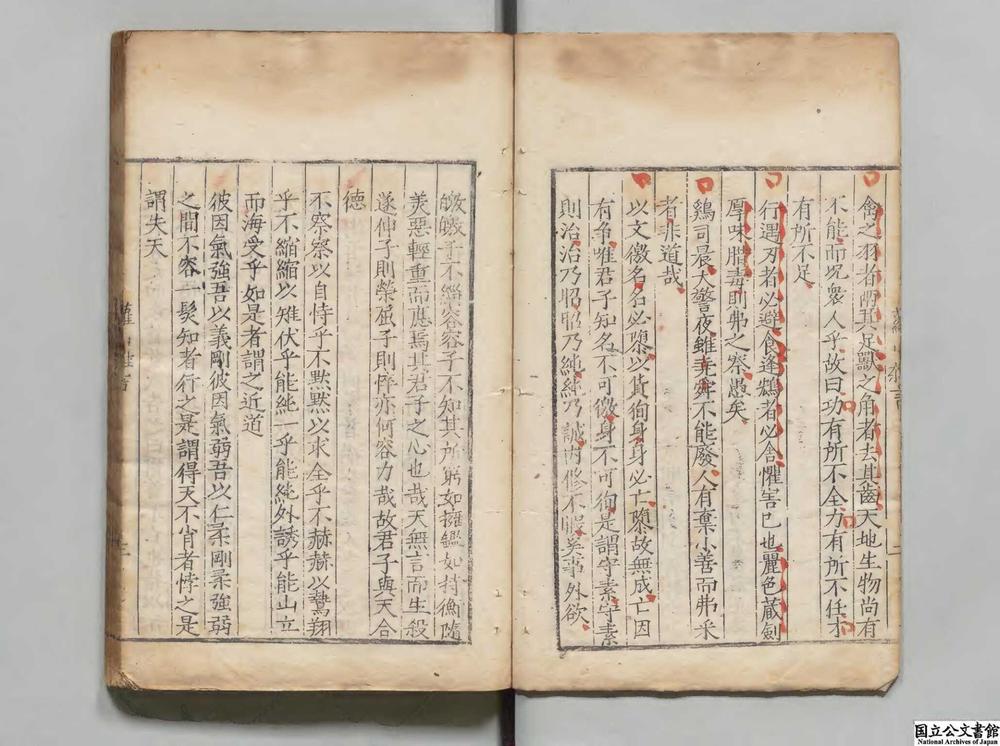 禽之羽者兩其足獸之角者去其齒天地生物尚有
不能而况衆人乎故曰功有所不全力有所不任才
有所不足
行遇刃者必避食逢鴆者必舍懼害己也麗色藏劍
厚味腊毒則弗之察愚矣
鷄司晨犬警夜雖堯舜不能廢人有棄小善而弗采
者非道哉
以文徼名名必隳以貨狥身身必亡隳故無成亡因
有争唯君子知名不可徼身不可狥是謂守素守素
則治治乃昭昭乃純純乃誠内修不暇奚事外欲
皦皦子不緇容容子不知其所躬如擁鑑如持衡隨
美惡輕重而應焉其君子之心也哉天無言而生殺
遂伸子則榮屈子則悴亦何容力哉故君子與天合
德
不察察以自恃乎不黙黙以求全乎不赫赫以騖翔
乎不縮縮以雉伏乎能純一乎能絶外誘乎能山立
而海受乎如是者謂之近道
彼因氣強吾以義剛彼因氣弱吾以仁柔剛柔強弱
之間不容一髪知者行之是謂得天不肖者悖之是
謂失天
三
国立公文書館
National Archives of Japan